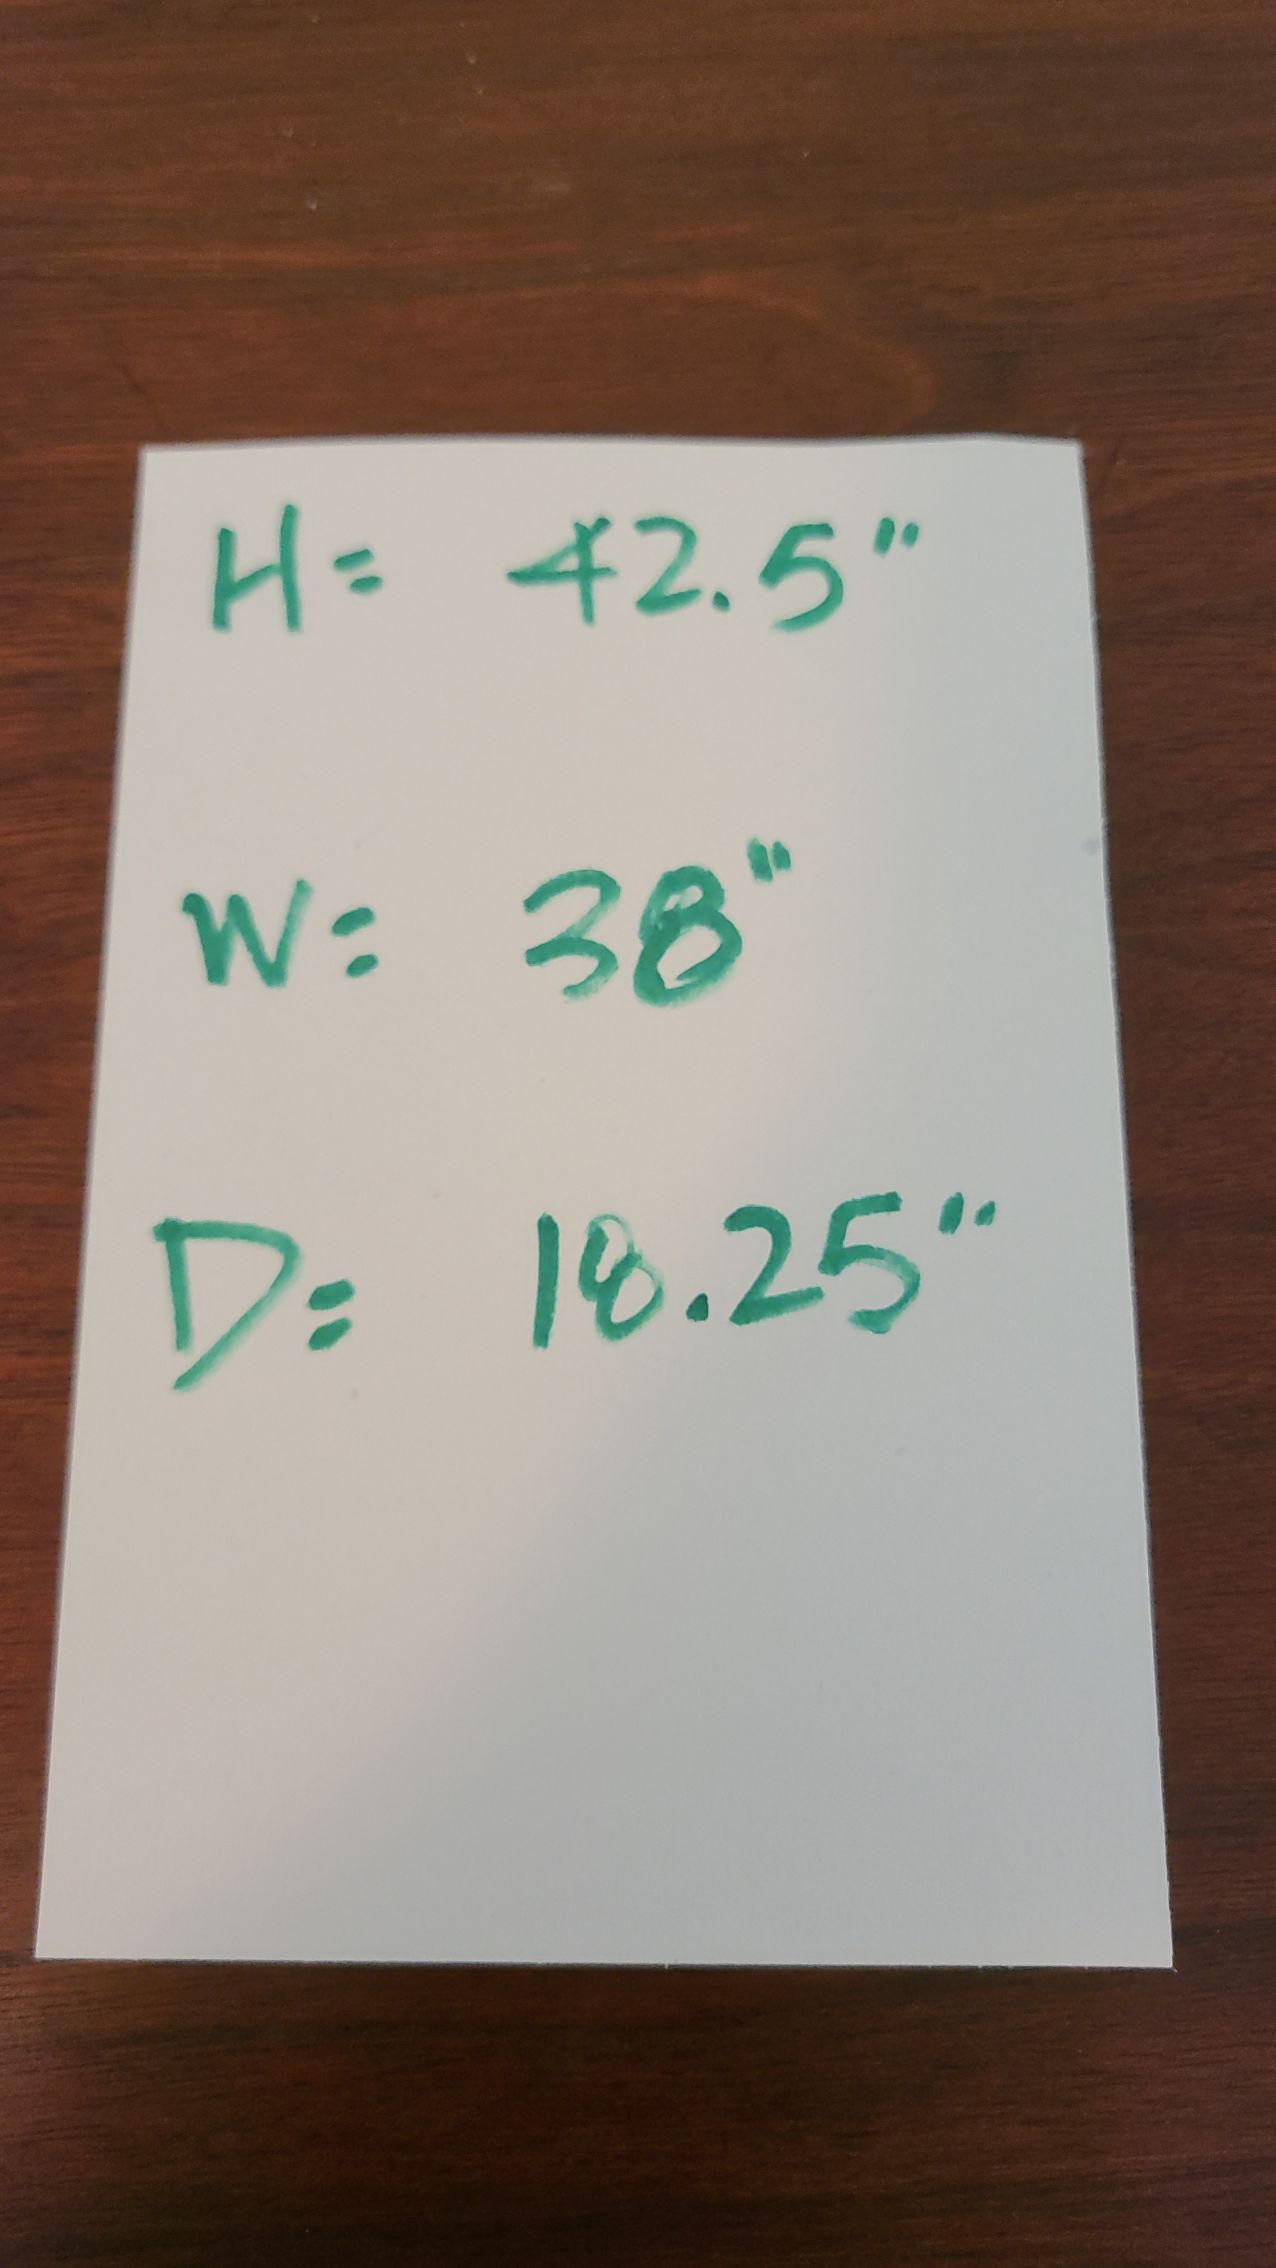 H= 42.5"
W= 38"
D= 18.25"